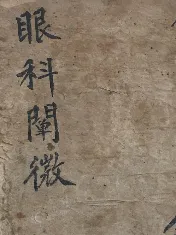 眼科闡微